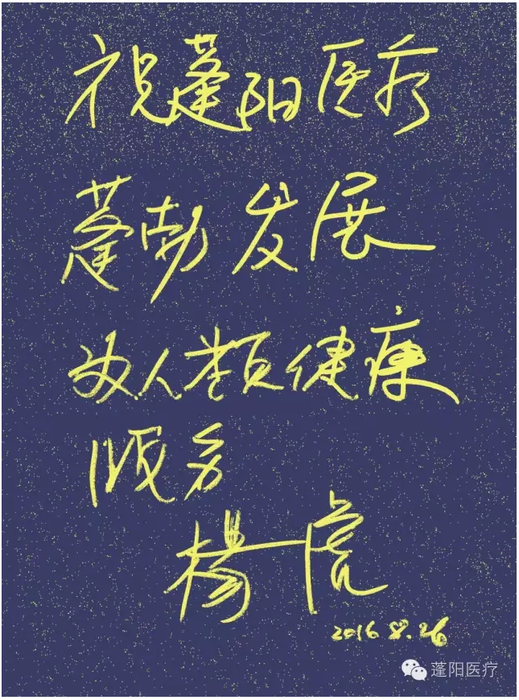 祝蓬阳医疗
蓬勃发展
为人类健康
服务
楊虎
2016.8.26
蓬阳医疗